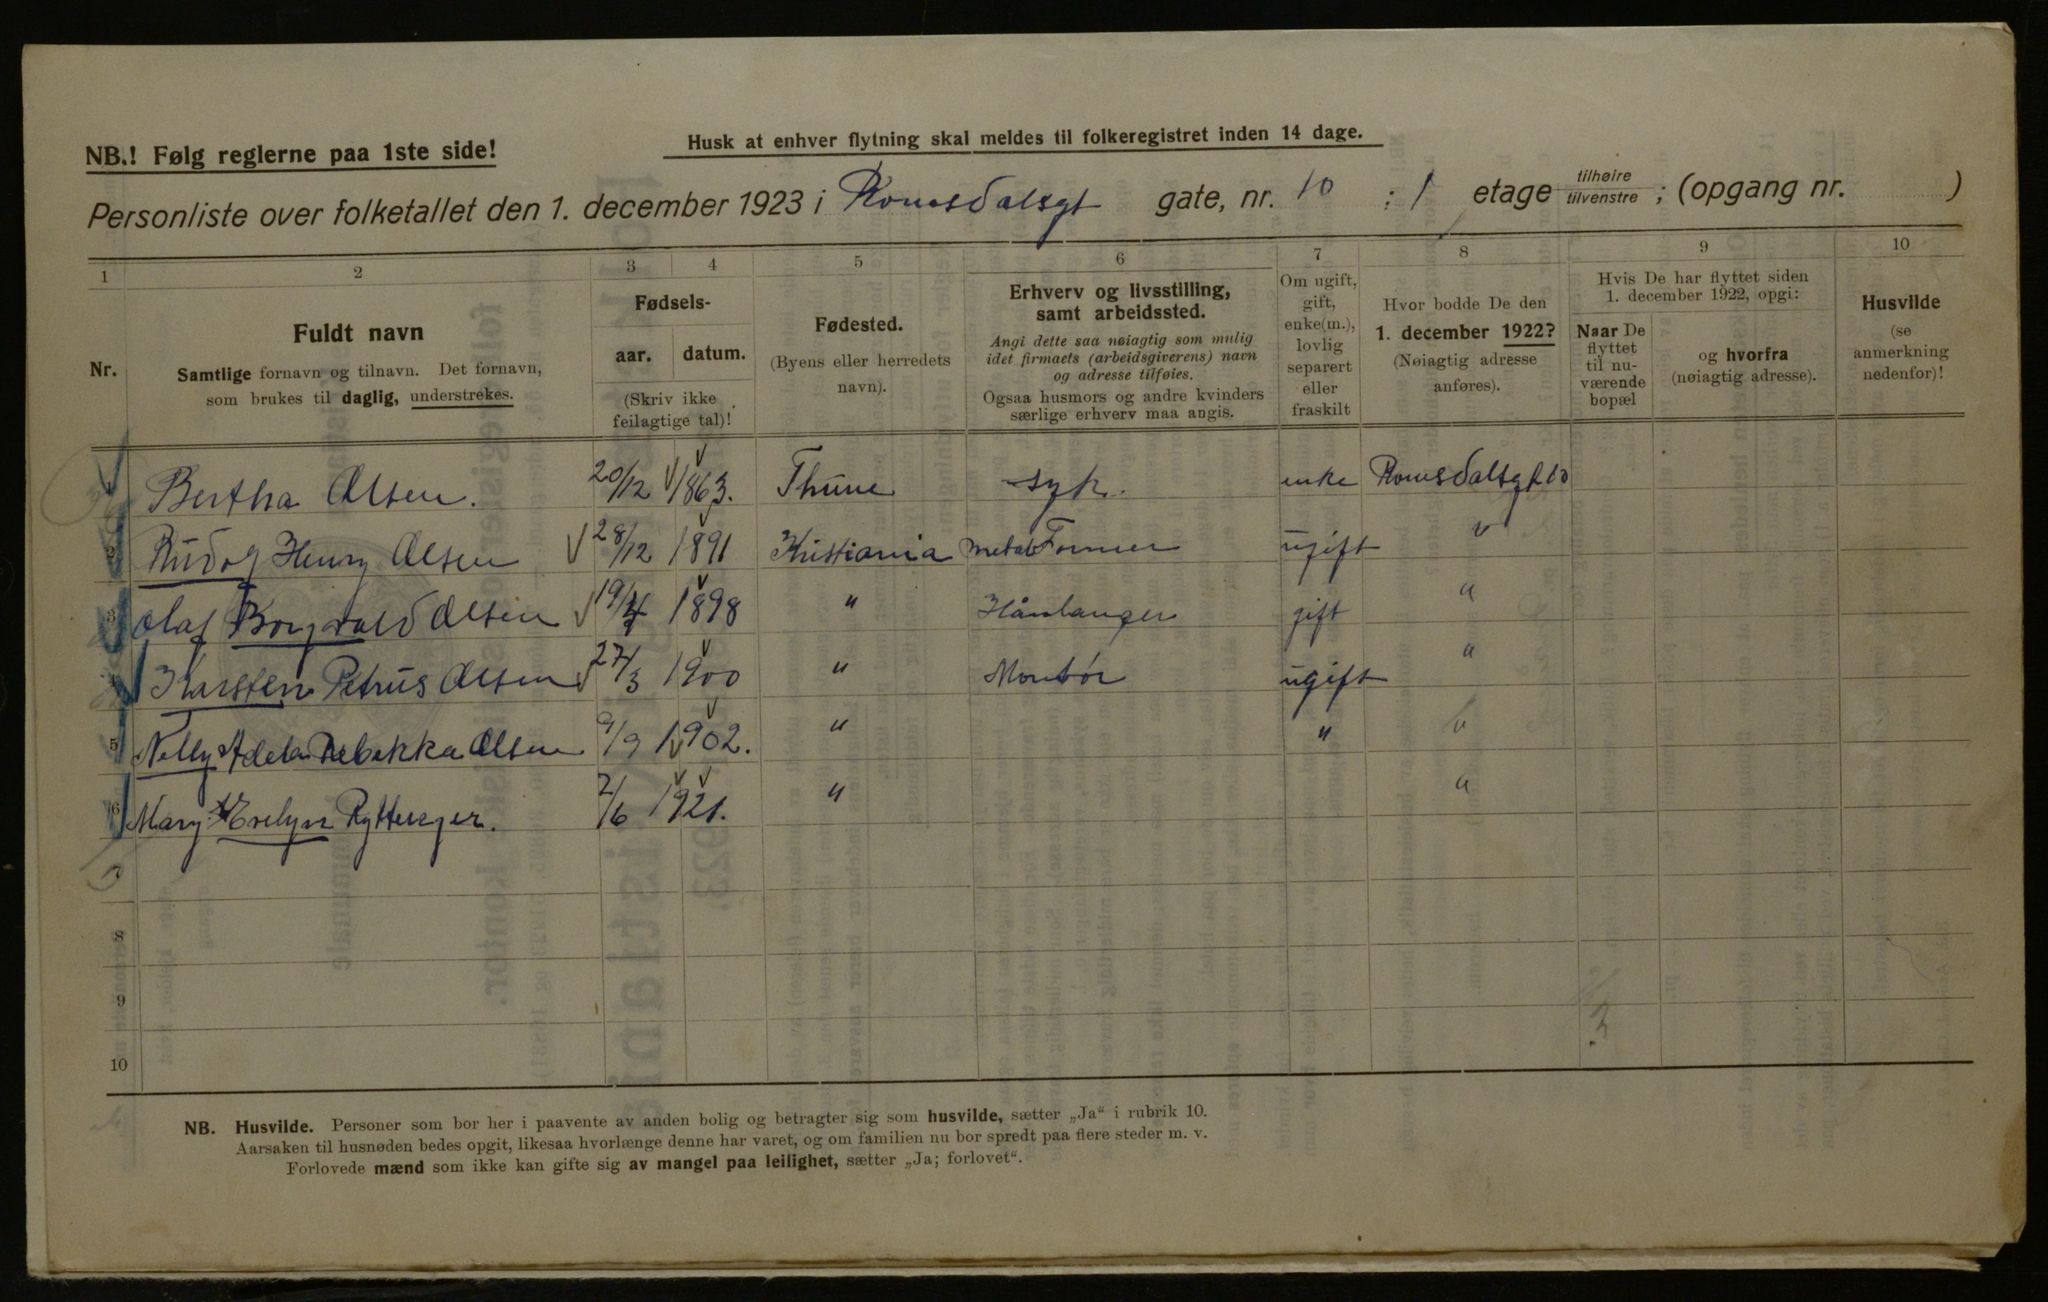 NB.! Følg reglerne paa 1ste side!
Husk at enhver flytning skal meldes til folkeregistret inden 14 dage.
Personliste over folketallet den 1. december 1923 i Romsdalsgt gate, nr. 10 ; 1 etage tilhøire tilvenstre ; (opgang nr. )
1 2 3 4 5 6 7 8 9 10
Nr.
Fuldt navn
Samtlige fornavn og tilnavn. Det fornavn,
som brukes til daglig, understrekes.
Fødsels-
aar. datum.
(Skriv ikke
feilagtige tal)!
Fødested.
(Byens eller herredets
navn).
Erhverv og livsstilling,
samt arbeidssted.
Angi dette saa nøiagtig som mulig
idet firmaets (arbeidsgiverens) navn
og adresse tilføies.
Ogsaa husmors og andre kvinders
særlige erhverv maa angis.
Om ugift,
gift,
enke(m.),
lovlig
separert
eller
fraskilt
Hvor bodde De den
1. december 1922?
(Nøiagtig adresse
anføres).
Hvis De har flyttet siden
1. december 1922, opgi:
Naar De
flyttet
til nu-
værende
bopæl
og hvorfra
(nøiagtig adresse).
Husvilde
(se
anmerkning
nedenfor)!
1 Bertha Olsen. 20/12 1863. Thune syk. enke Romsdalsgt 10
2 Rudolf Henry Olsen 28/12 1891 Kristiania metal Former ugift "
3 Olaf Borgvald Olsen 19/4 1898 " Hånlanger gift "
4 Karsten Petrus Olsen 27/3 1900 " Montør ugift "
5 Nelly Adela Rebekka Olsen 9/9 1902. " " "
6 Mary Evelyn Rytterger. 2/6 1921. " "
7
8
9
10
NB. Husvilde. Personer som bor her i paavente av anden bolig og betragter sig som husvilde, sætter „Ja“ i rubrik 10.
Aarsaken til husnøden bedes opgit, likesaa hvorlænge denne har varet, og om familien nu bor spredt paa flere steder m. v.
Forlovede mænd som ikke kan gifte sig av mangel paa leilighet, sætter „Ja; forlovet“.